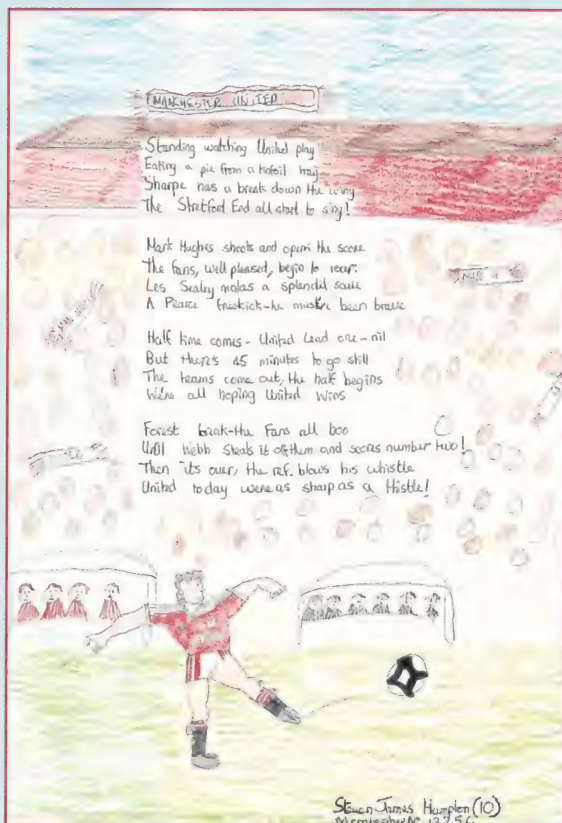 MANCHESTER UNITED
Standing watching United play
Eating a pie from a tinfoil tray
Sharpe has a break down the wing
The Stretford End all start to sing!
Mark Hughes shoots and opens the score
The fans, well pleased, begin to roar.
Les Sealey makes a splendid save
A Pearce freekick-he must've been brave
Half time comes - United lead one-nil
But there's 45 minutes to go still
The teams come out, the half begins
We're all hoping United Wins
Forest break-the fans all boo
Until Webb steals it off them and scores number two!
Then it's over, the ref. blows his whistle
United today were as sharp as a thistle!
Steven James Hampton (10)